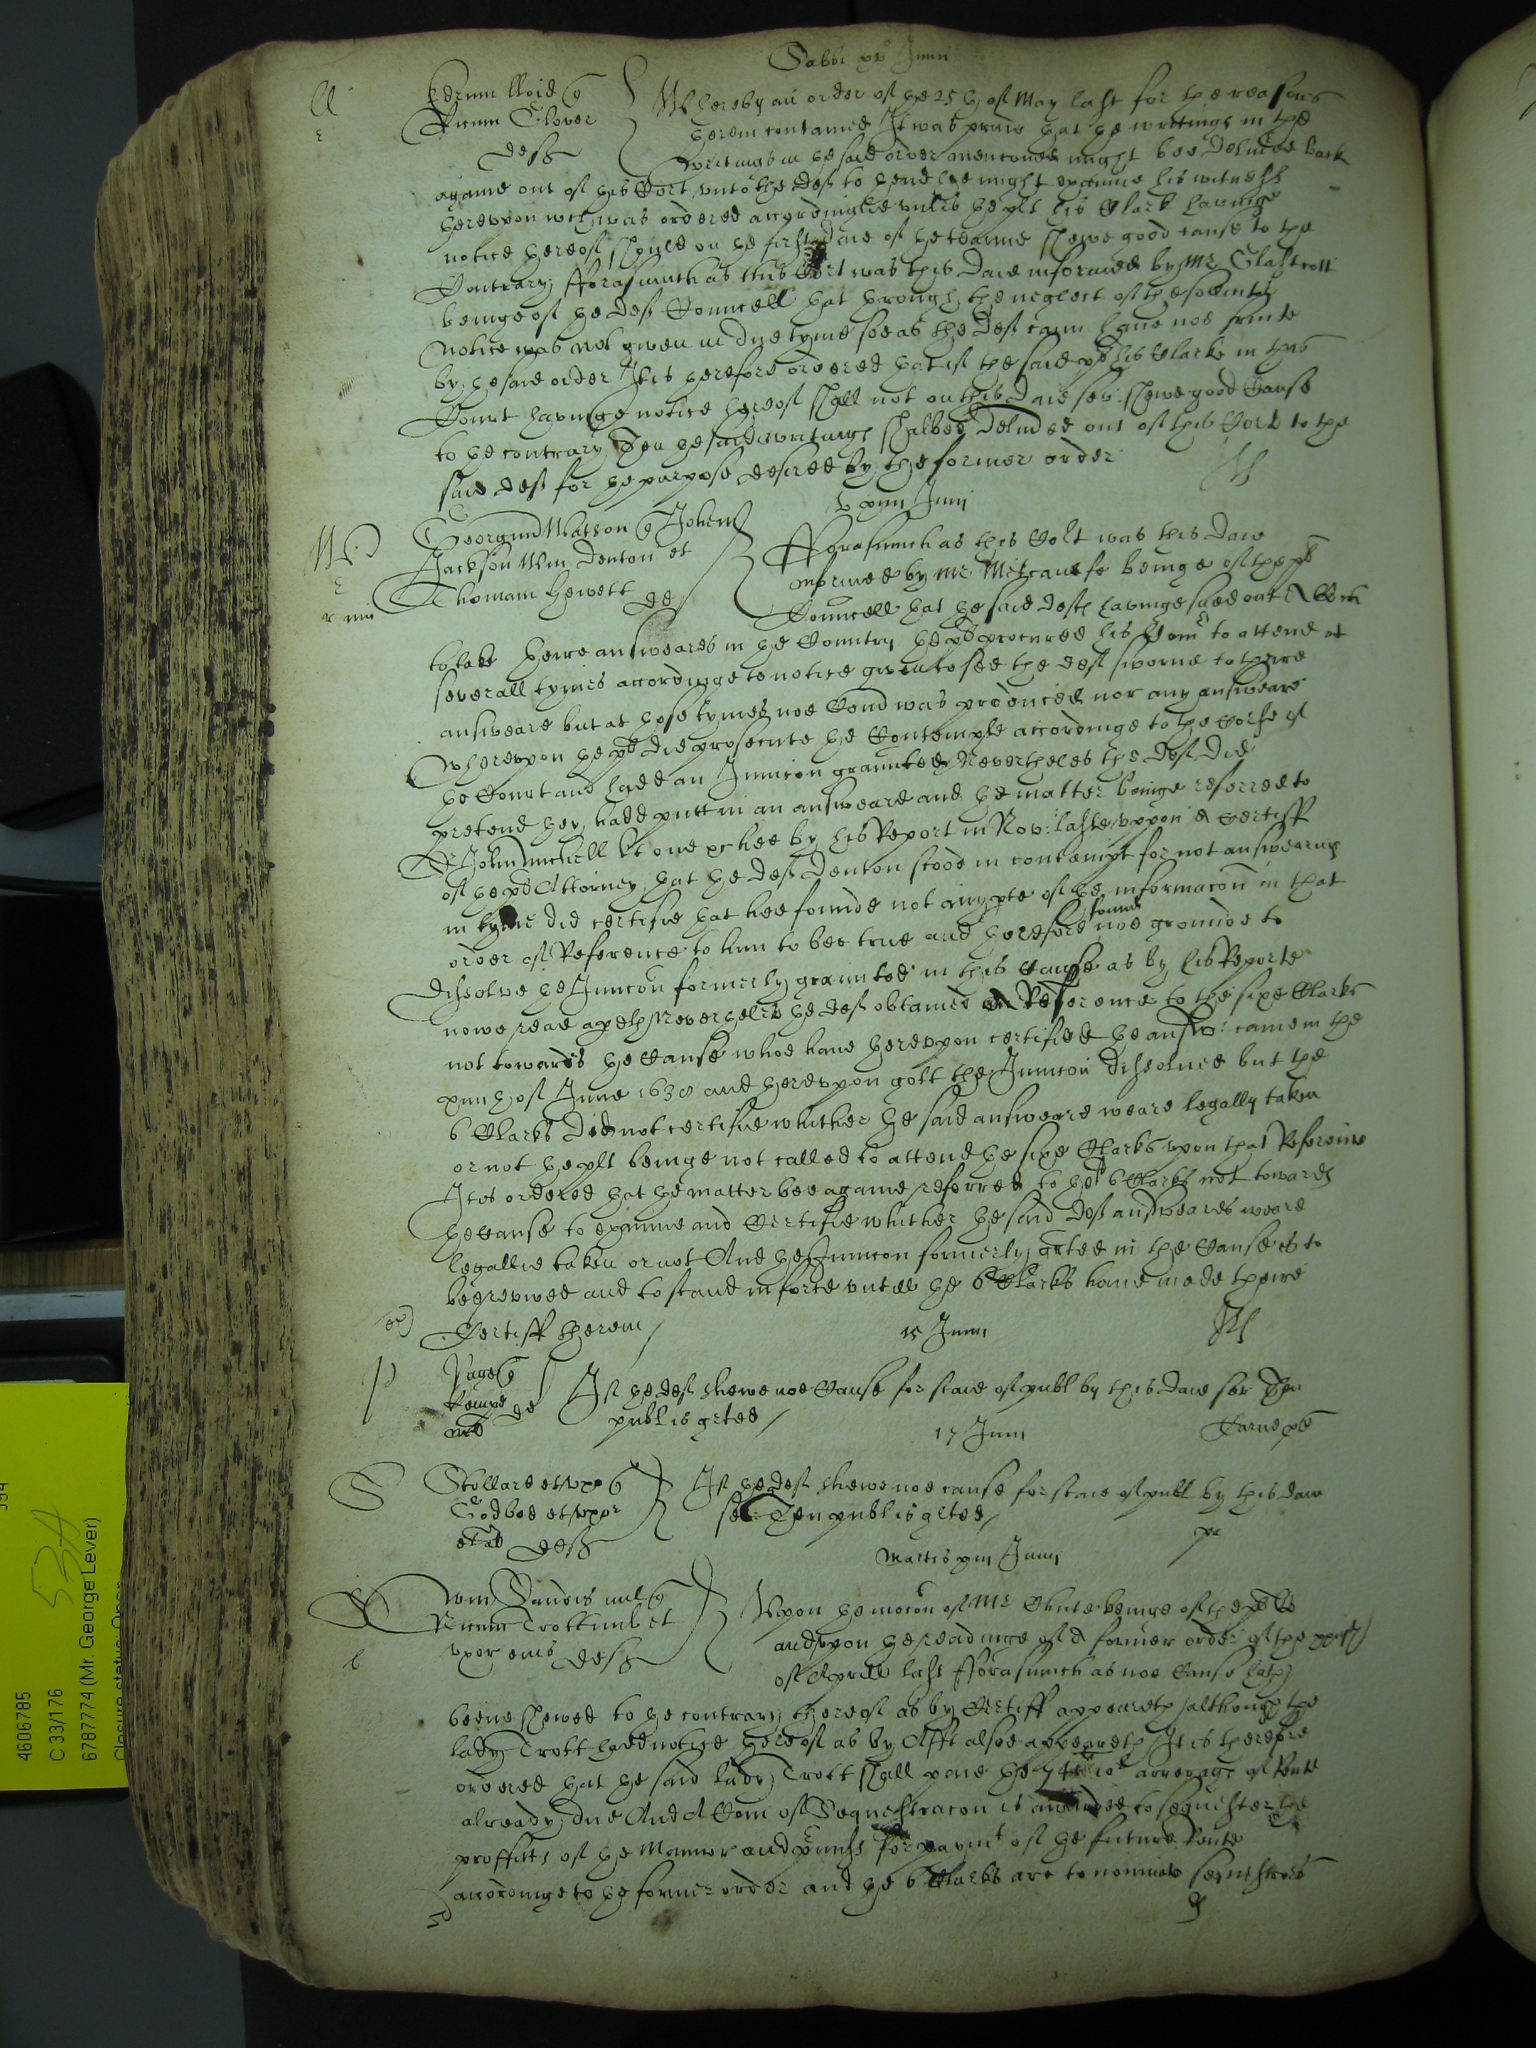 Sabbi xv Junii
Edrum lloid q
Ricum Glover
defts
Whereby an order of the 25th of May last for the reasons
therein contained It was praied that the writings in the
writings in the said order mentioned might bee delivered back
againe out of this Cort unto the deft to thend hee might examine his witnesses
thereupon wch was ordered accordinglie unles the plt his Clark havinge
notice thereof should on the first daie of the tearme shewe good cause to the
Contrary fforasmuch as this Cort was this daie informed by Mr Glascott
beinge of the defts Councell that through the neglect of the
notice was not given in due tyme soe as the deft cann have noe fruite
by the said order It is therefore ordered that if the said plt his Clarke in this
Court havinge notice hereof shall not on this daie sev: shewe good Cause
to the contrary Then the said writings shalbee delivred out of this Cort to the
said deft for the purpose desired by the former order
xviii Junii
Georgius Watson q Johem
Jackson Wm Denton et
Thomam Hewett de
Fforasmuch as this Cort was this daie
informed by Mr Metcaulfe beinge of the plts
Councell that the said defts havinge sued out a
to take theire answeares in the Country the plt procured his Comr to attend at
severall tymes accordinge to notice given to see the deft sworne to theire
answeare but at those tymes noe Comd was produced nor any answeare
whereupon the plt did prosecute the Contempte accordinge to the Corse of
the Court and hadd an Injuncon graunted Neverthelesse the deft did
pretend they hadd putt in an answeare and the matter beinge referred to
Sr John Michell Kt one &c hee by his Report in Nov: laste uppon a certiff
of the plts Attorney that the deft Denton stood in contempt for not answearing
in tyme did certifie that hee founde not any pte of the informacon in that
order of Reference to him to bee true and therefore found noe grounde to
dissolve the Injuncon formerly graunted in this Cause as by his Reporte
nowe read apeth Nevertheles the deft obtained a Reference to the sixe Clarks
not towards the Cause whoe have thereupon certified the answ: came in the
xviiith of June 1630 and thereupon gott the Injuncon dissolved but the
6 Clarks did not certifie whither the said answeare weare legally taken
or not the plt beinge not called to attend the sixe Clarks upon that Reference
It is ordered that the matter bee againe referred to the 6 Clarks not towards
the Cause to examine and Certifie whither the said defts answeares weare
legallie taken or not And the Injuncon formerly grted in the Cause is to
be revived and to stand in force untill the 6 Clarks have made theire
Certiff therein
15 Junii
Page q
Kempe de
If the deft shewe noe Cause for staie of publ by this daie sev Then
publ is grted
17 Junii
Stollard et uxor q
Godbed et uxor
et al defts
If the deft shewe noe cause for staie of publ by this daie
sev: Then publ is grted
Martis xviii Junii
Wm Sandis mil q
Ricum Trott milit et
uxor eius defts
Upon the mocon of Mr Chute beinge of the plts
and upon the readinge of a former order of the
of Aprill last fforasmuch as noe Cause hath
beene shewed to the contrary thereof as by Certiff appeareth although the
lady Trott hadd notice thereof as by Afft alsoe appeareth It is therefore
ordered that the said lady Trott shall paie the arrerages of Rente
already due And A Com of Sequestracon is awarded to sequester the
proffitts of the Mannor and pmiss for paymt of the future Rente
accordinge to the former order and the 6 Clarks are to nominate sequestrators
4606785
C 33/176
6787774 (Mr. George Lever)
Closure status: Open
534